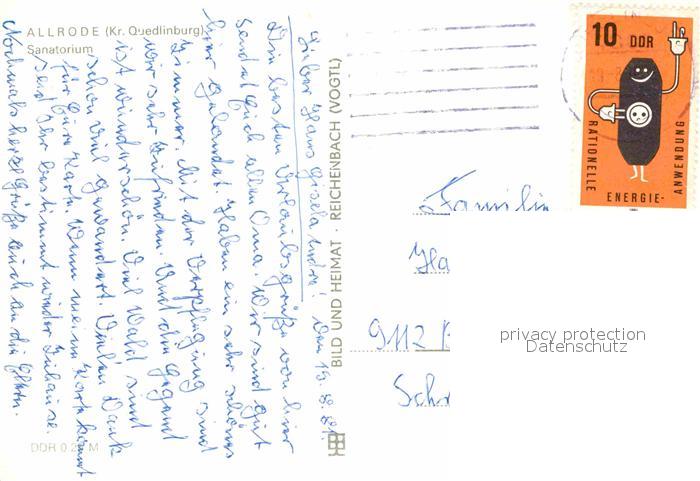 ALLRODE (Kr. Quedlinburg)
Sanatorium
Den 15.8.81.
Die besten Urlaubsgrüße von hier
sendet Euch allen Oma. Wir sind gut
hier gelandet. Haben ein sehr schönes
Zimmer. Mit der Verpflegung sind
wir sehr zufrieden. Und die Gegend
ist wunderschön. Viel Wald sind
schon viel gewandert. Vielen Dank
für Eure Karte. Wenn meine Karte kommt
seid Ihr bestimmt wieder zuhause.
Nochmals herzl. Grüße auch an die Eltern.
DDR 0.20 M
BILD UND HEIMAT · REICHENBACH (VOGTL)
10 DDR
RATIONELLE ENERGIE-ANWENDUNG
Familie
Ha
9112
Sch
privacy protection
Datenschutz